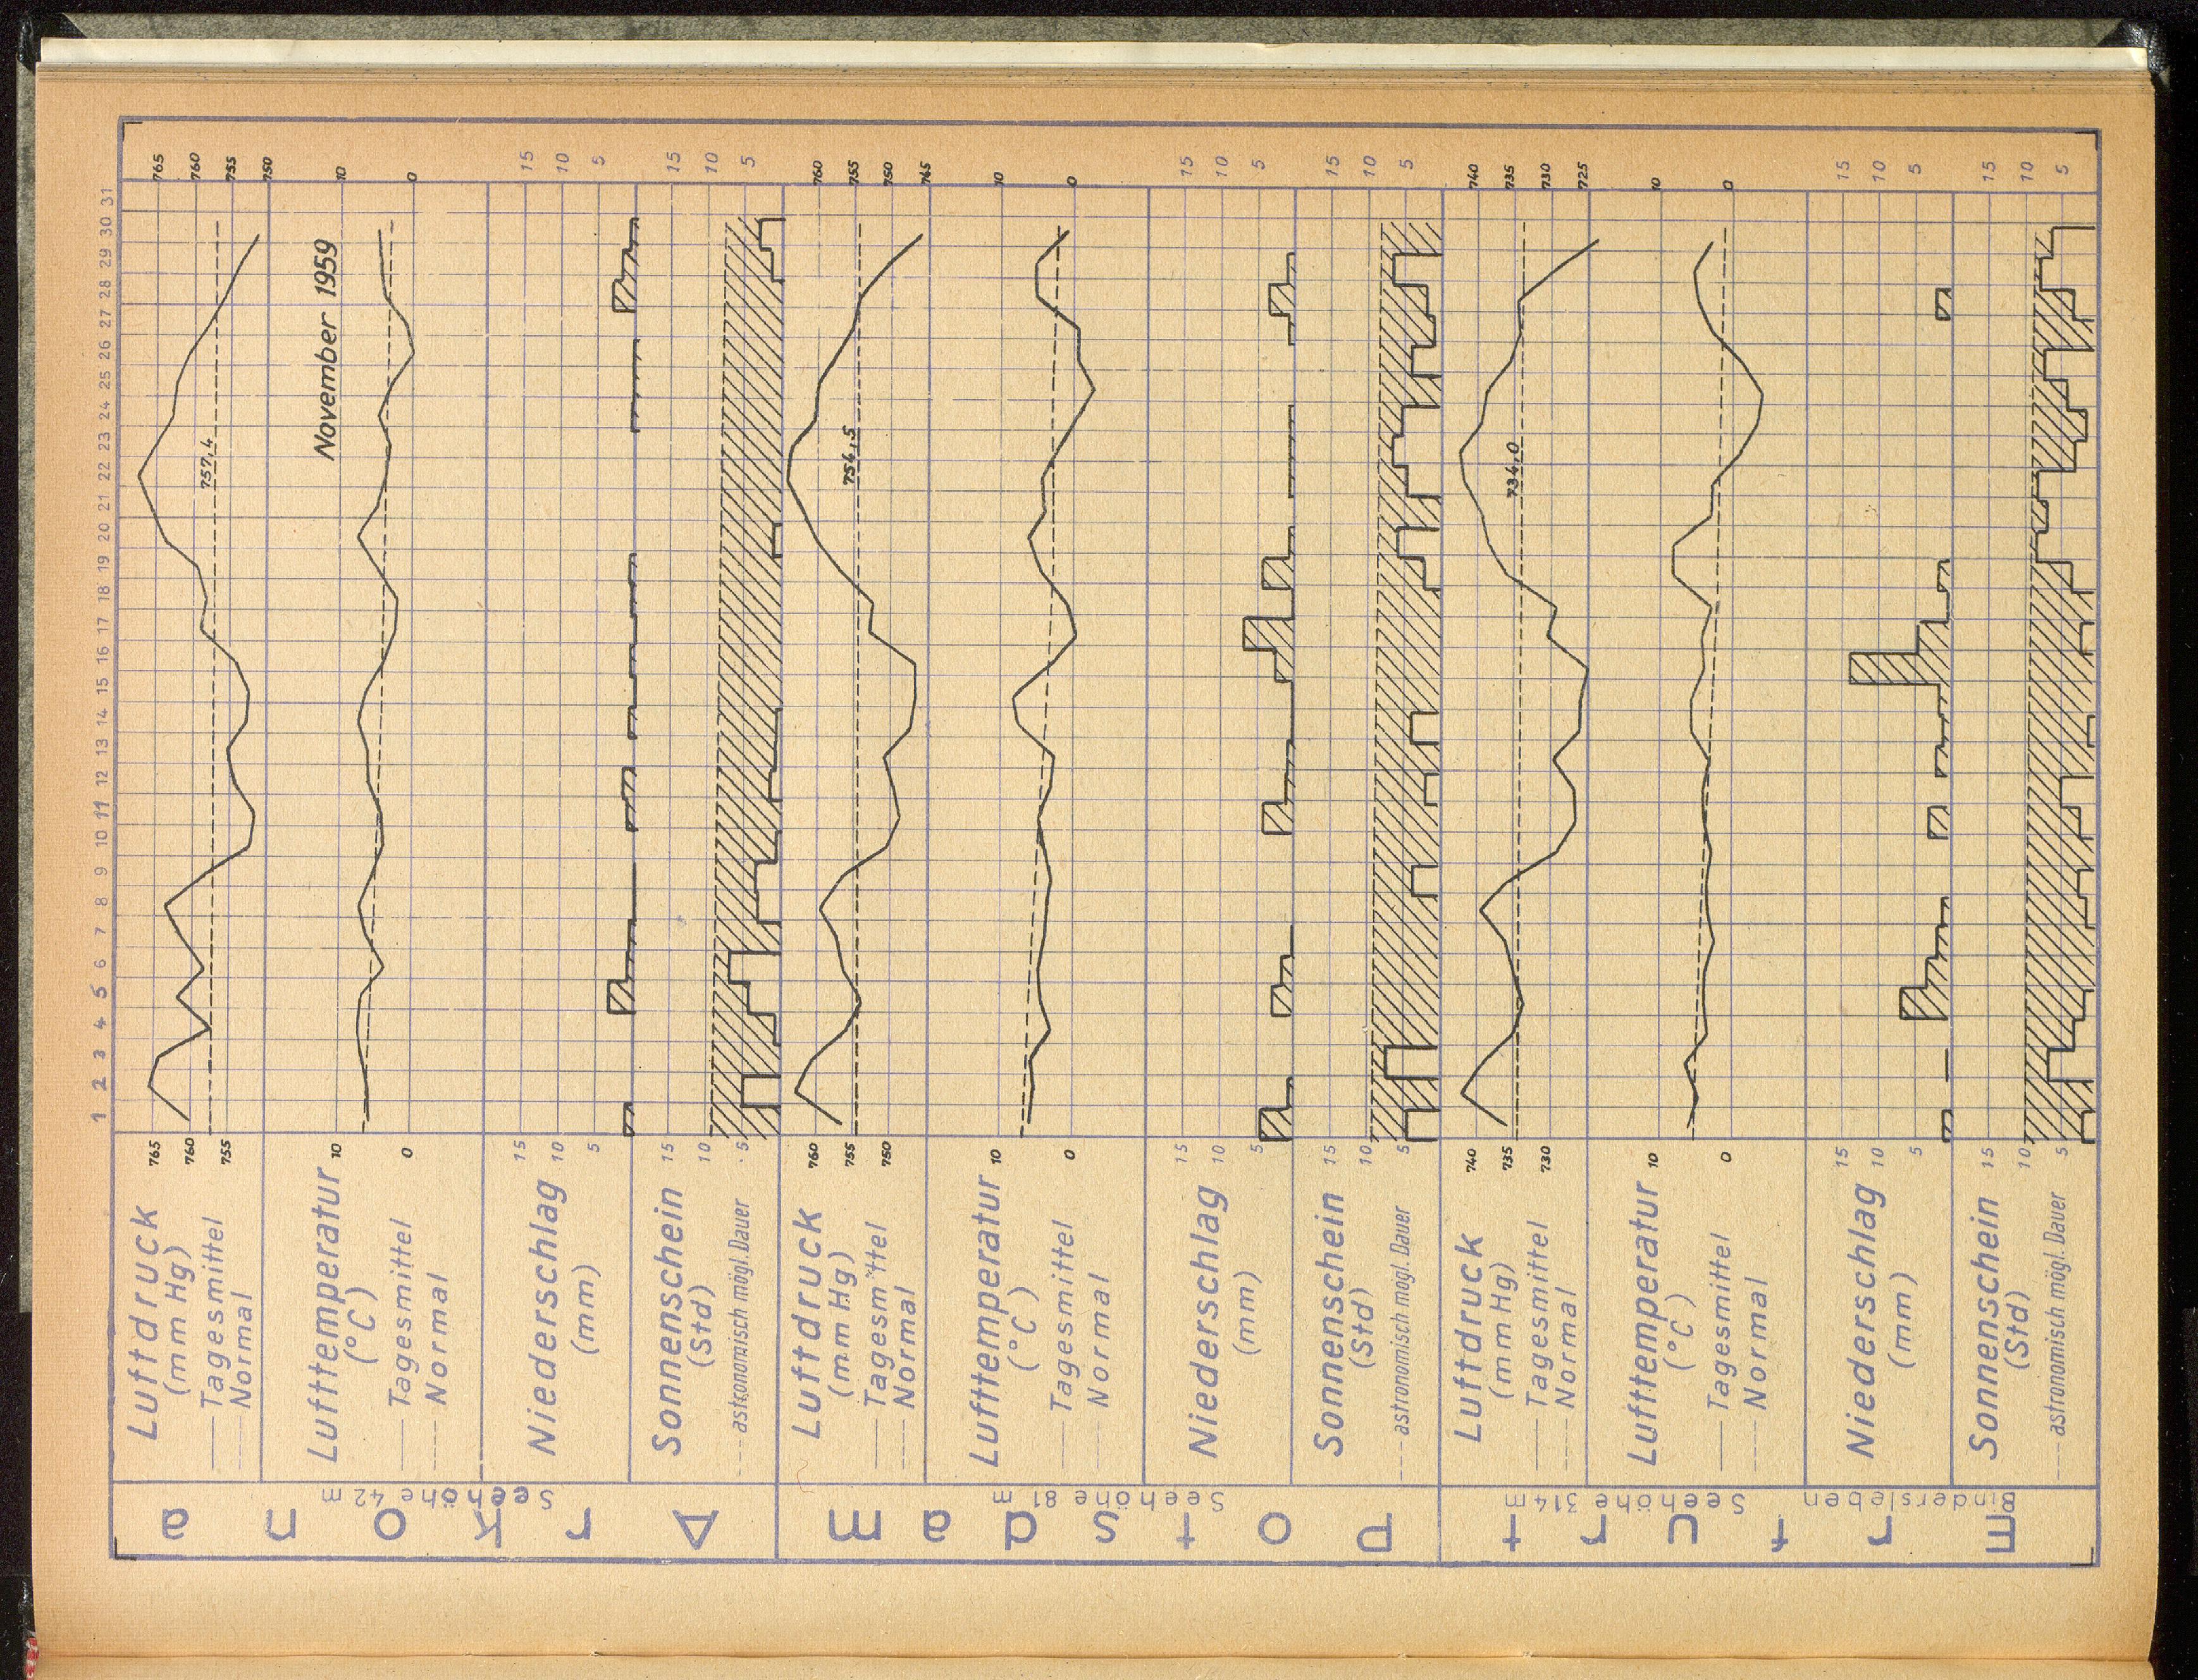 1 2 3 4 5 6 7 8 9 10 11 12 13 14 15 16 17 18 19 20 21 22 23 24 25 26 27 28 29 30 31
November 1959
Arkona
Seehöhe 42 m
Luftdruck
(mm Hg)
Tagesmittel
Normal
765 760 755
757,4
765 760 755 750
Lufttemperatur
(°C)
Tagesmittel
Normal
10 0
10 0
Niederschlag
(mm)
15 10 5
15 10 5
Sonnenschein
(Std)
astronomisch mögl. Dauer
15 10 5
15 10 5
Potsdam
Seehöhe 81 m
Luftdruck
(mm Hg)
Tagesmittel
Normal
760 755 750
754,5
760 755 750 745
Lufttemperatur
(°C)
Tagesmittel
Normal
10 0
10 0
Niederschlag
(mm)
15 10 5
15 10 5
Sonnenschein
(Std)
astronomisch mögl. Dauer
15 10 5
15 10 5
Erfurt
Bindersleben Seehöhe 314 m
Luftdruck
(mm Hg)
Tagesmittel
Normal
740 735 730
734,0
740 735 730 725
Lufttemperatur
(°C)
Tagesmittel
Normal
10 0
10 0
Niederschlag
(mm)
15 10 5
15 10 5
Sonnenschein
(Std)
astronomisch mögl. Dauer
15 10 5
15 10 5